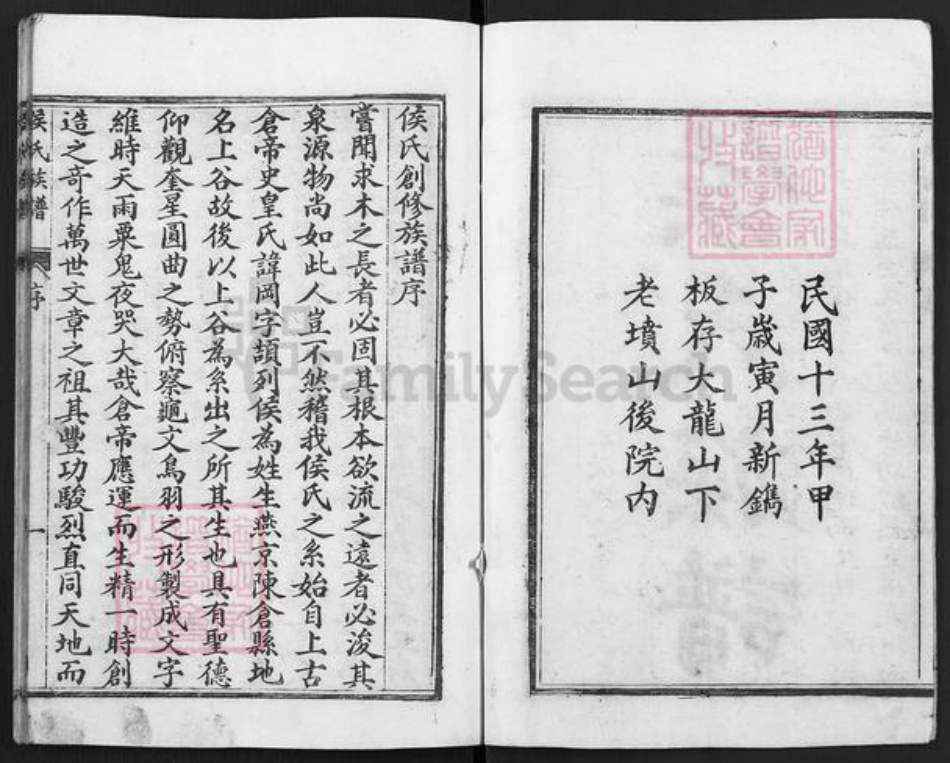 民國十三年甲
子歲寅月新鐫
板存大龍山下
老墳山後院內
猶他家
譜學會
收藏
侯氏創修族譜序
嘗聞求木之長者必固其根本欲流之遠者必浚其
泉源物尚如此人豈不然稽我侯氏之系始自上古
倉帝史皇氏諱岡字頡列侯為姓生燕京陳倉縣地
名上谷故後以上谷為系出之所其生也具有聖德
仰觀奎星圓曲之勢俯察龜文鳥羽之形製成文字
維時天雨粟鬼夜哭大哉倉帝應運而生精一時創
造之奇作萬世文章之祖其豐功駿烈直同天地而
侯氏族譜
序
一
猶他家
譜學會
收藏
FamilySearch